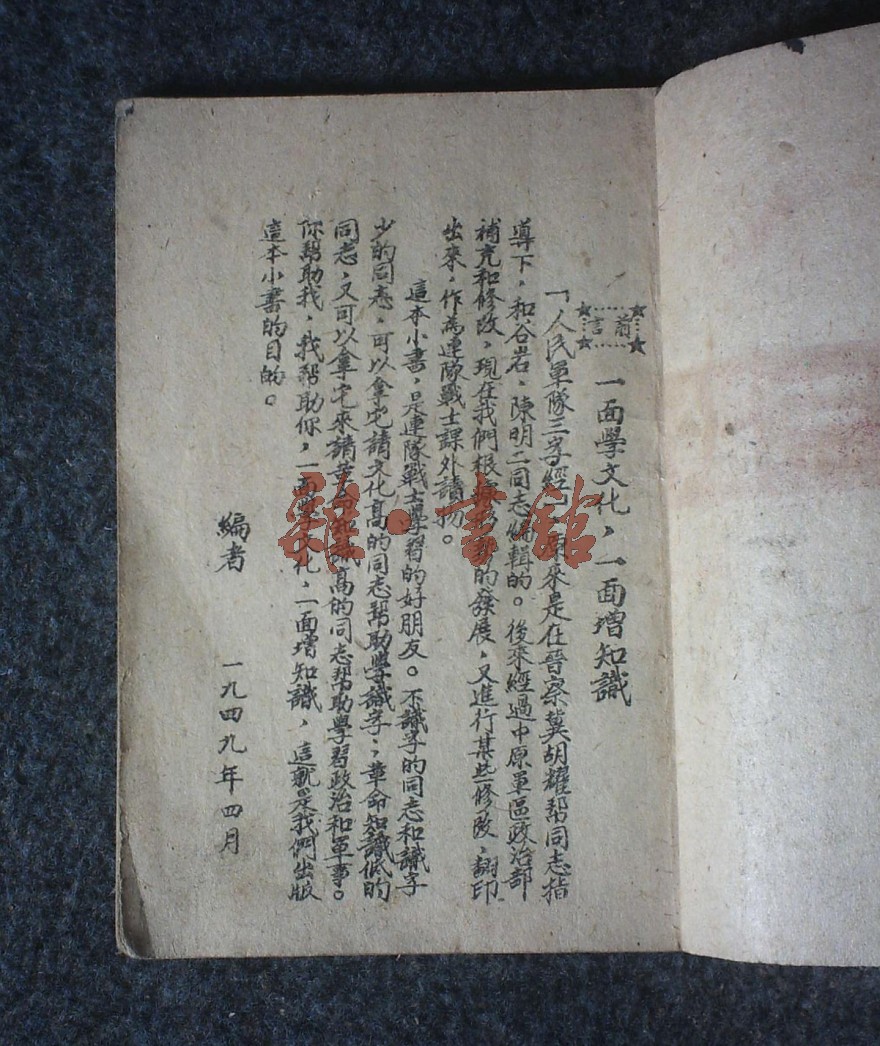 前言
一面學文化，一面增知識
「人民軍隊三字經」原來是在晉察冀胡耀幇同志指
導下，和谷岩、陳明二同志編輯的。後來經過中原軍區政治部
補充和修改，現在我們根據形勢的發展，又進行某些修改，翻印
出來，作為連隊戰士課外讀物。
這本小書，是連隊戰士學習的好朋友。不識字的同志和識字
少的同志，可以拿它請文化高的同志幇助學識字；革命知識低的
同志，又可以拿它來請革命知識高的同志幇助學習政治和軍事。
你幇助我，我幇助你，一面學文化，一面增知識，這就是我們出版
這本小書的目的。
編者
一九四九年四月
雜·書館